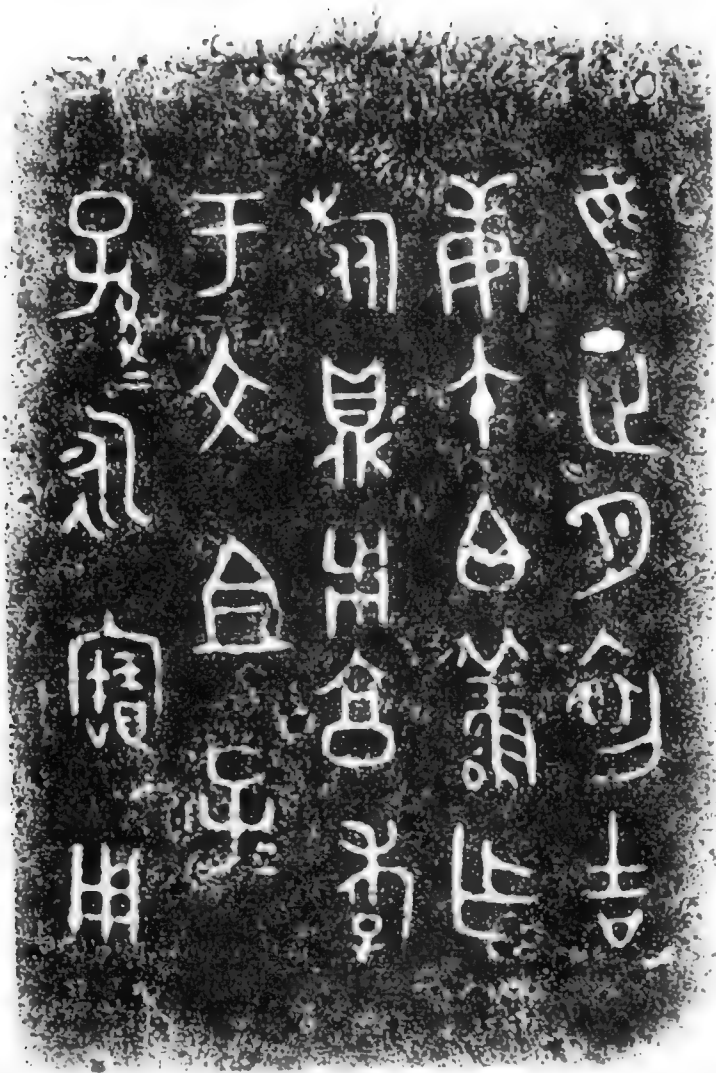 隹正月初吉
庚午白鮮乍
旅鼎用享孝
于文且子=
孫=永寶用